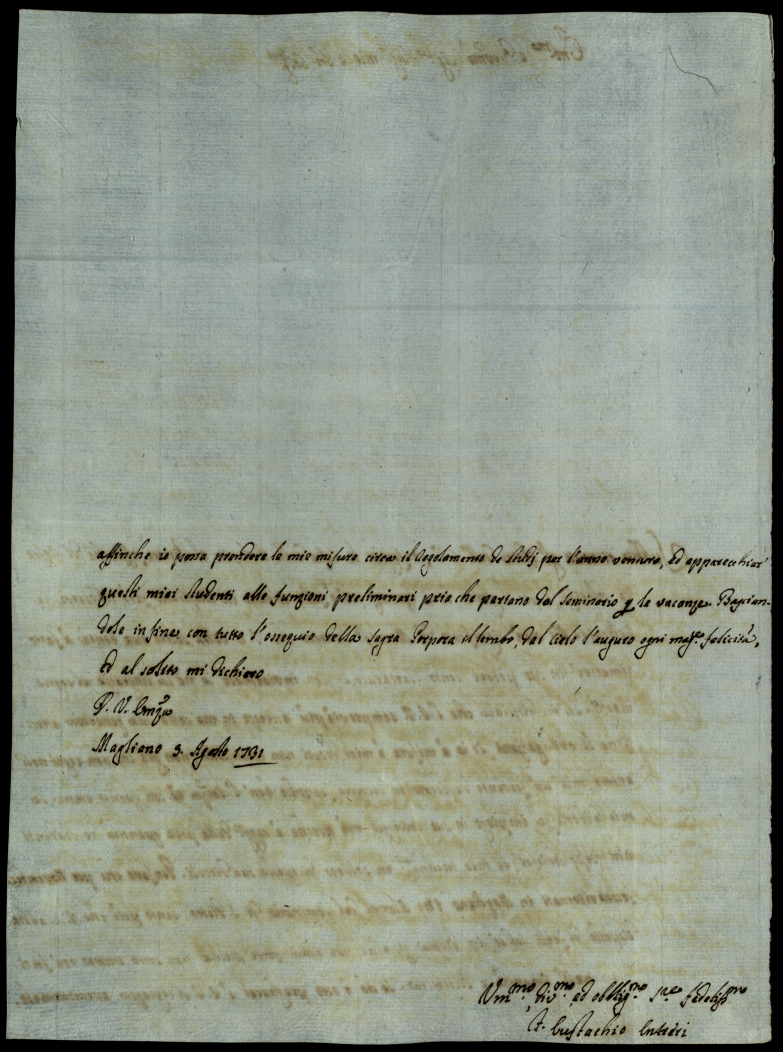 affinche io possa prendere le mie misure circa il Regolamento de studj per l'anno venturo, ed apparecchiar
questi miei studenti alle funzioni preliminari pria che partano dal seminario p le vacanze. Bacian-
dole in fine con tutto l'ossequio della Sagra Porpora il lembo, dal Cielo l'auguro ogni magre. felicità,
Ed al solito mi dichiaro
D. V. Emza
Magliano 3. Agosto 1731
Ummo, divmo, ed obbligmo fedelissmo
F. Eustachio